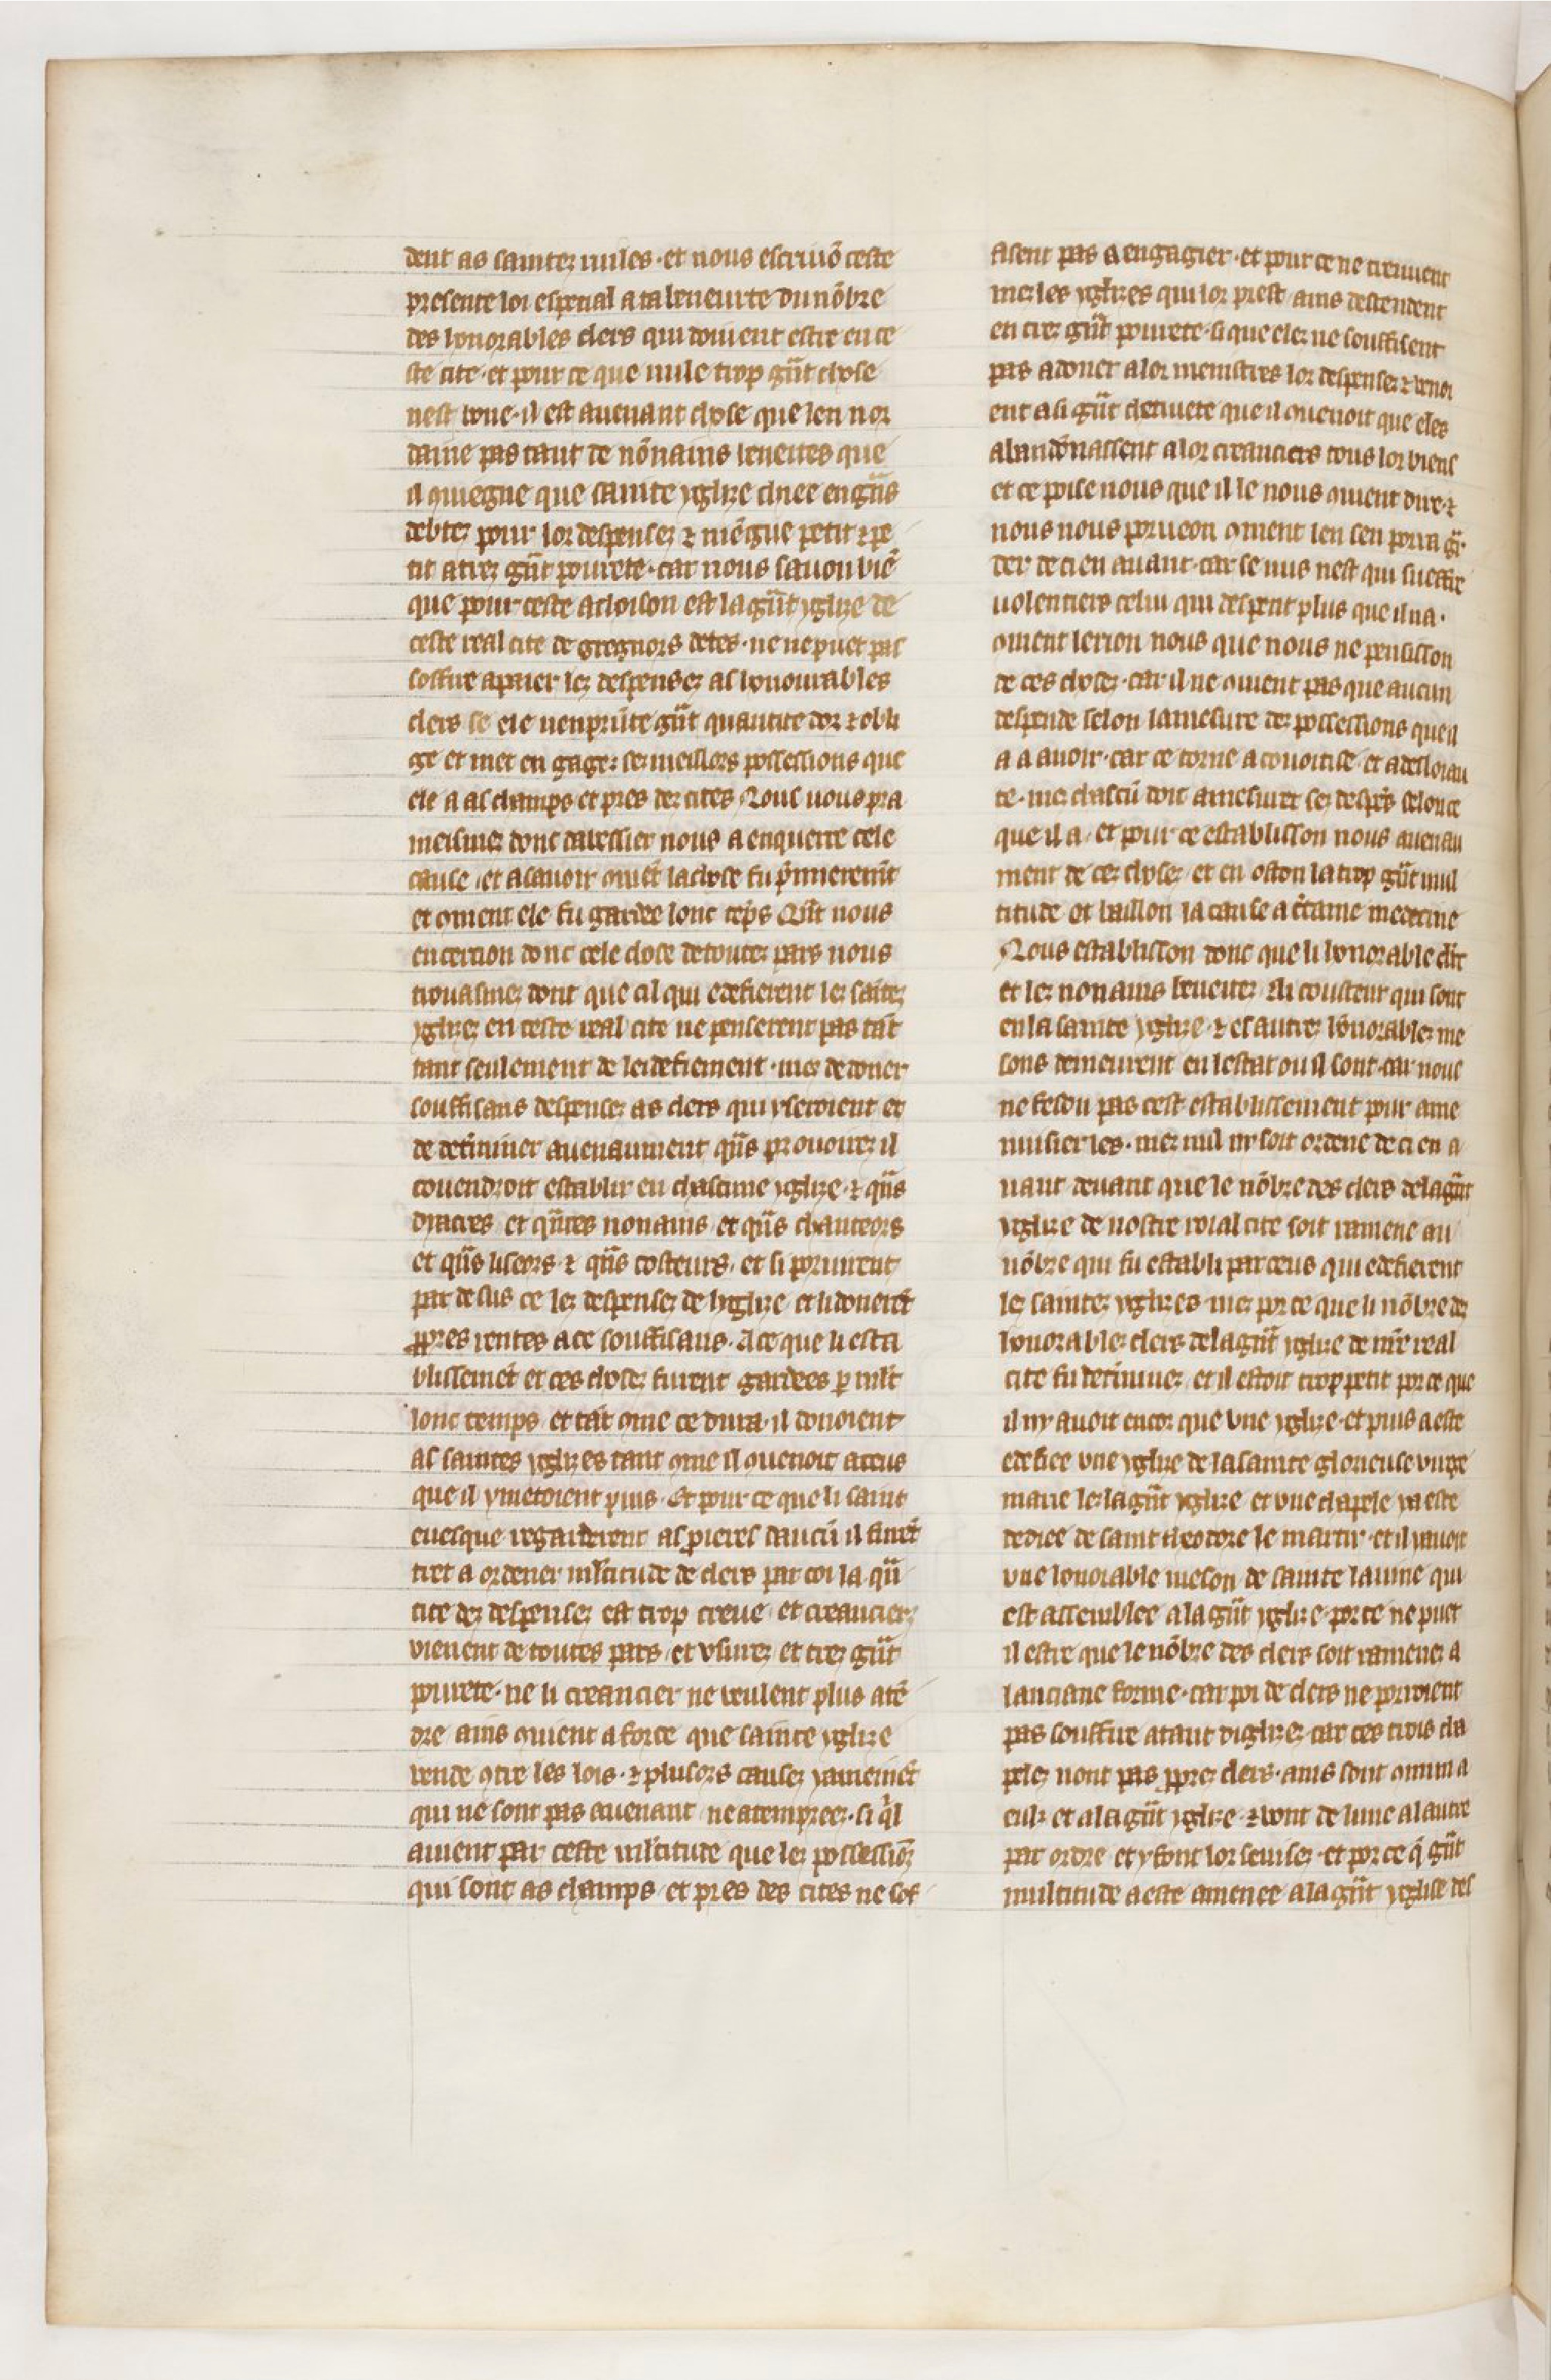 dent as saintez riules · et nous escriuō ceste
presente loi especial a ta beneurte du nōbre
des honorables clers qui doiuent estre en ce
ste cite · et pour ce que nule trop gn̄t chose
nest bone · il est auenant chose que len nor
daine pas tant de nōnains beneites que
il ꝯuiegne que sainte yglize chiee en gn̄s
debtez pour lor despensez ⁊ uiēgne petit ⁊ pe
tit a trez gn̄t pourete · car nous sauon biē
que pour ceste achoison est la gn̄t yglize de
ceste real cite de gregnors detes · ne ne puet pas
soffire a paier lez despensez as honourables
clers se ele nenprūte gn̄t quantite dor ⁊ obli
ge et met en gage : sez meillors possessions que
ele a as champs et pres dez cites Nous nous pra
meismez donc dabessier nous a enquerre cele
cause · et a sauoir ꝯmēt la chose fu p̄mierem̄t
et ꝯment ele fu gardee lonc tēps Qn̄t nous
encercion donc cele chose de toutez pars nous
trouasmez dont que cil qui edefierent lez saītez
yglizez en ceste real cite ne penserent pas tāt
tant seulement de ledefiement · mez de doner
souffisans despensez as clers qui y seroient et
de detīminer auenaument qn̄s prouoirez il
couendroit establir en chascune yglize · ⁊ qn̄s
diacres et qn̄tes nonains et qn̄s chanteors
et qn̄s liseors · ⁊ qn̄s costeurs · et si porurent
par desus ce lez despensez de lyglize et li donerēt
ꝓpres rentes a ce souffisans · A ce que li esta
blissemēt et ces chosez furent gardees p mlt̄
lonc temps et tāt ꝯme ce dura · il donoient
as saintes yglizes tant ꝯme il ꝯuenoit a ceus
que il y metoient puis · Et pour ce que li saint
euesque regarderent as proieres daucū il furēt
tret a ordener mlt̄itude de clers par coi la qn̄
tite dez despensez est trop creue · et creancierz
vienent de toutes pars · et vsurez et trez gn̄t
pourete · ne li creancier ne veulent plus atē
dre ains ꝯuient a force que sainte yglize
vende ꝯtre les lois · ⁊ plusors causez
qui ne sont pas auenant ne atemprees · si q̄l
auient par ceste mlt̄itude que lez possessiōz
qui sont as champs et pres des cites ne sof
fisent pas a engagier · et pour ce ne treuuent
mez les yglizes qui lor prest ains descendent
en trez gn̄t pourete · si que elez ne souffisent
pas a doner a lor menistres lor despensez ⁊
ent a si gn̄t chetiuete que il ꝯuenoit que eles
abandōnassent a lor creanciers tous lor biens
et ce poise nous que il le nous ꝯuient dire · ⁊
nous nous porueon ꝯment len sen porra gā
der de ci en auant · car se nus nest qui sueffre
uolentiers celui qui despent plus que il na ·
ꝯment lerion nous que nous ne pensisson
de ces chosez · car il ne ꝯuient pas que aucun
despende selon la mesure dez possessions que il
a a auoir · car ce torne a couoitise et a desloiau
te · mez chascū doit amesurer sez despēs selonc
que il a · et pour ce establisson nous auenau
ment de cez chosez et en oston la trop gn̄t mul
titude et baillon la cause a c̄taine medecine
Nous establisson donc que li honorable clerc
et lez nonains beneitez · li cousteur qui sont
en la sainte yglize · ⁊ es autrez hōnorablez me
sons demeurent en lestat ou il sont · car nous
ne feson pas cest establissement pour ame
nuisier les · mez nul ni soit ordene de ci en a
uant deuant que le nōbre des clers de la gn̄t
yglize de nostre roial cite soit ramene au
nōbre qui fu establi par ceus qui edefierent
lez saintez yglizes · mez por ce que li nōbre dez
honorablez clers de la gn̄t yglize de nr̄e real
cite fu detīminez et il estoit trop petit por ce que
il ny auoit encor que vne yglize · et puis a este
edefiee vne yglize de la sainte glorieuse virge
marie lez la gn̄t yglize et vne chapele ia este
dediee de saint theodore le martir · et il y auoit
vne honorable meson de sainte laiune qui
est assemblee a la gn̄t yglize · por ce ne puet
il estre que le nōbre des clers soit ramenez a
lanciane forme · car poi de clers ne porroient
pas souffire a tant diglizez car ces trois cha
pelez nont pas ꝓprez clers · ains sont
eulz et a la gn̄t yglize · ⁊ vont de lune a lautre
par ordre et y font lor seruisez · et por ce q̄ gn̄t
multitude a este amenee a la gn̄t yglise des